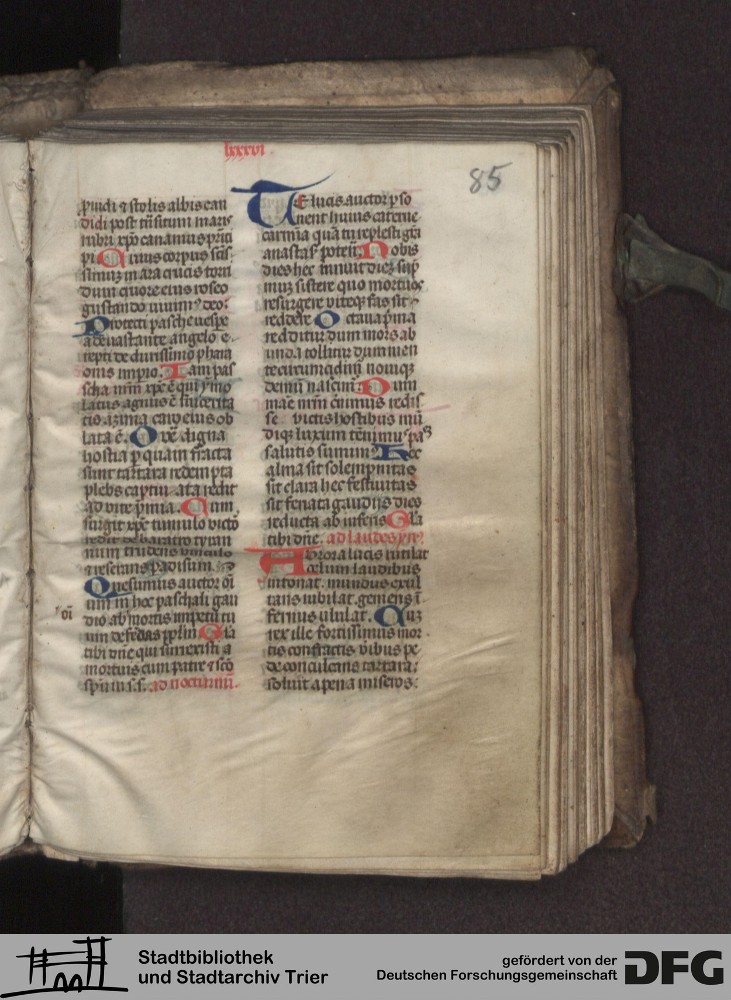 lxxxvi
85
ꝓuidi ⁊ stolis albis can
didi post tͣsitum maris
rubri xp̄o canamus pͥnci
pi Cuius corpus sc̄is
simuꝫ in ara crucis torri
dum cruore eius roseo
gustando viuimꝰ deo.
Protecti pasche vesꝑe
a deuastante angelo e
repti de durissimo phara
onis imꝑio. Iam pas
cha nr̄m xp̄c ē qui ymo
latus agnus ē sincerita
tis azima caro eius ob
lata ē. O ve᷒ digna
hostia ꝑ quam fracta
sunt tartara redempta
plebs captiuata redit
ad vite p̄mia. Cum
surgit xp̄c tumulo victor
redit de baratro tyran
num trudens vinculo
⁊ reserans ꝑadisum.
Quesumus auctor oī
um in hoc paschali gau
dio ab oī mortis impetu tu
um defendas ppl̄m Glā
tibi dn̄e qui surrexisti a
mortuis cum patre ⁊ sc̄o
spū in s. s. ad nocturnū.
Te lucis auctor ꝑso
nent huius caterue
carmina quā tu replesti grā
anastasꝭ potenti. Nobis
dies hec innuit diē sup̄
muꝫ sistere quo mortuos
resurgere viteqꝫ fas sit
reddere Octaua pͥma
redditur dum mors ab
unda tollitur dum men
te circumcidimur nouiqꝫ
demū nascimur Dum
mane nr̄m cernimus redis
se victis hostibus mū
diqꝫ luxum tēnimꝰ pa
salutis sumimꝰ Hec
alma sit solempnitas
sit clara hec festiuitas
sit feriata gaudijs dies
reducta ab inferis Glā
tibi dn̄e. ad laudes ym̄.
Aurora lucis rutilat
celum laudibus
intonat. mundus exul
tans iubilat. gemens ī
fernus ululat. Cuꝫ
rex ille fortissimus mor
tis confractis viribus pe
de conculcans tartara:
soluit a pena miseros:
oī
Stadtbibliothek
und Stadtarchiv Trier
gefördert von der
Deutschen Forschungsgemeinschaft
DFG